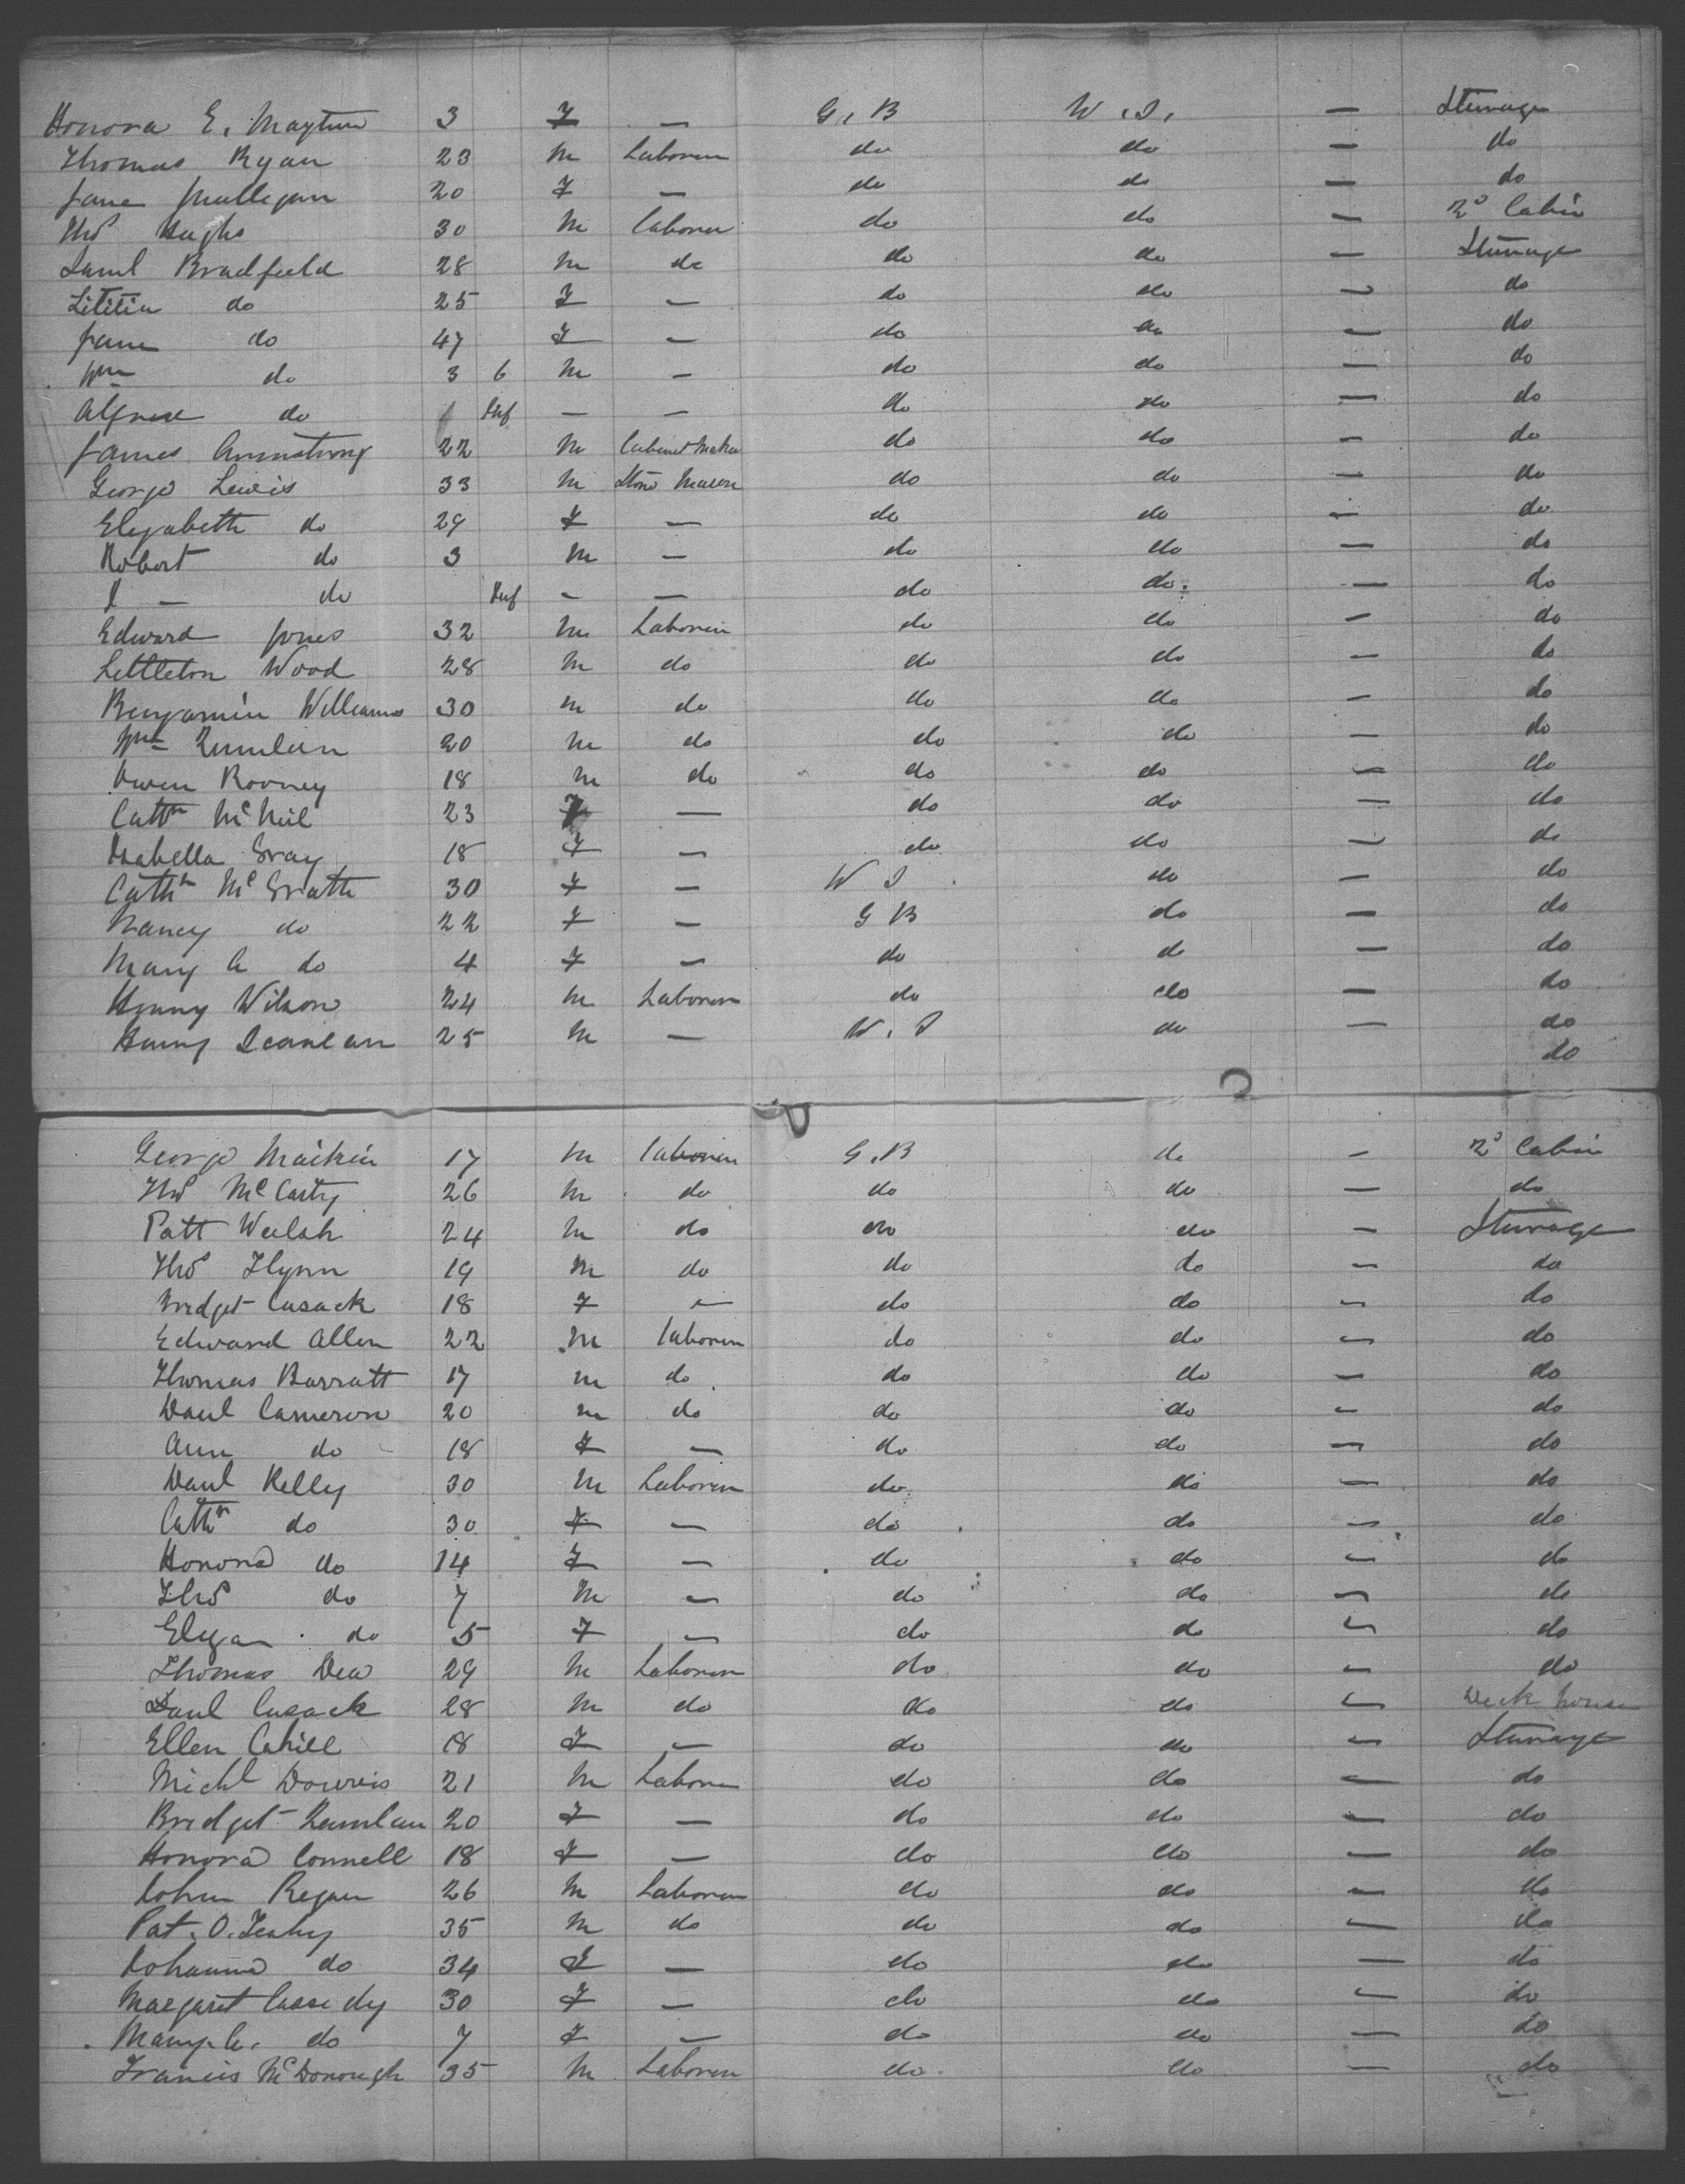 Honora E. 3 F — G. B W. S. — Steerage
Thomas Ryan 23 M Laborer do do — do
Jane Mulligan 20 F — do do — do
Thos Hughs 30 M Laborer do do — 2d Cabin
Saml Bradfield 28 M do do do — Steerage
Lititia do 25 F — do do — do
Jane do 47 F — do do — do
Wm do 3 6 M — do do — do
do Inf — — do do — do
James Armstrong 22 M Cabinet Maker do do — do
George Lewis 33 M Stone Mason do do — do
Elizabeth do 29 F — do do — do
Robert do 3 M — do do — do
— do Inf — — do do — do
Edward Jones 32 M Laborer do do — do
Littleton Wood 28 M do do do — do
Benjamin Williams 30 M do do do — do
Wm 20 M do do do — do
Owen Rooney 18 M do do do — do
Cathn McNeil 23 F — do do — do
Isabella Gray 18 F — do do — do
Cathn McGrath 30 F — W S do — do
Nancy do 22 F — G B do — do
Mary A do 4 F — do do — do
Henry Wilson 24 M Laborer do do — do
Henry 25 M — W. S do — do
do
George 17 M Laborer G. B do — 2d Cabin
Thos McCarty 26 M do do do — do
Patt Walsh 24 M do do do — Steerage
Thos Flynn 19 M do do do — do
Bridget Cusack 18 F — do do — do
Edward Allen 22 M Laborer do do — do
Thomas Barratt 17 M do do do — do
Danl Cameron 20 M do do do — do
Ann do 18 F — do do — do
Danl Kelly 30 M Laborer do do — do
Cathn do 30 F — do do — do
Honora do 14 F — do do — do
Thos do 7 M — do do — do
Eliza do 5 F — do do — do
Thomas Dea 29 M Laborer do do — do
Danl Cusack 28 M do do do — Deck house
Ellen Cahill 18 F — do do — Steerage
Michl 21 M Laborer do do — do
Bridget 20 F — do do — do
Honora Connell 18 F — do do — do
John Regan 26 M Laborer do do — do
Pat. O. 35 M do do do — do
Johanna do 34 F — do do — do
Margaret Cassidy 30 F — do do — do
Mary A. do 7 F — do do — do
Francis McDonough 35 M Laborer do do — do